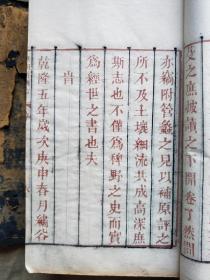 之庶披讀之下開卷了然閒
亦竊附管蠡之見以補原評之
所不及土壤細流共成高深庶
斯志也不僅爲稗野之史而實
爲經世之書也夫
旹
乾隆五年歲次庚申春月繡谷